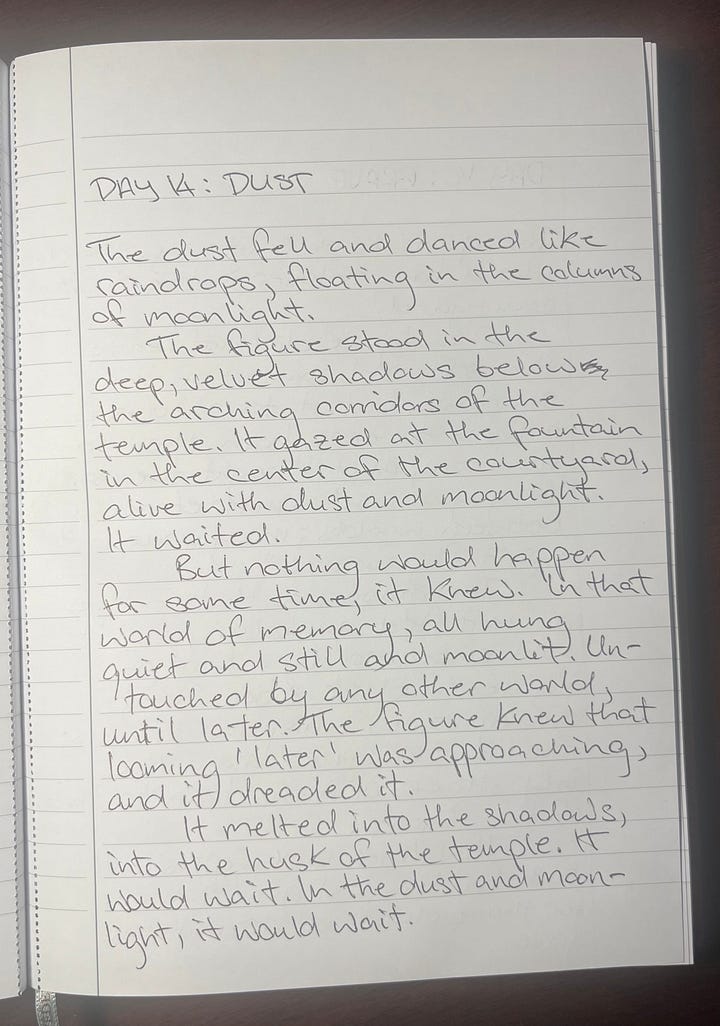 DAY 14: DUST
The dust fell and danced like
raindrops, floating in the columns
of moonlight.
The figure stood in the
deep, velvet shadows below
the arching corridors of the
temple. It gazed at the fountain
in the center of the courtyard,
alive with dust and moonlight.
It waited.
But nothing would happen
for some time, it knew. In that
world of memory, all hung
quiet and still and moonlit. Un-
touched by any other world,
until later. The figure knew that
looming 'later' was approaching,
and it dreaded it.
It melted into the shadows,
into the husk of the temple. It
would wait. In the dust and moon-
light, it would wait.